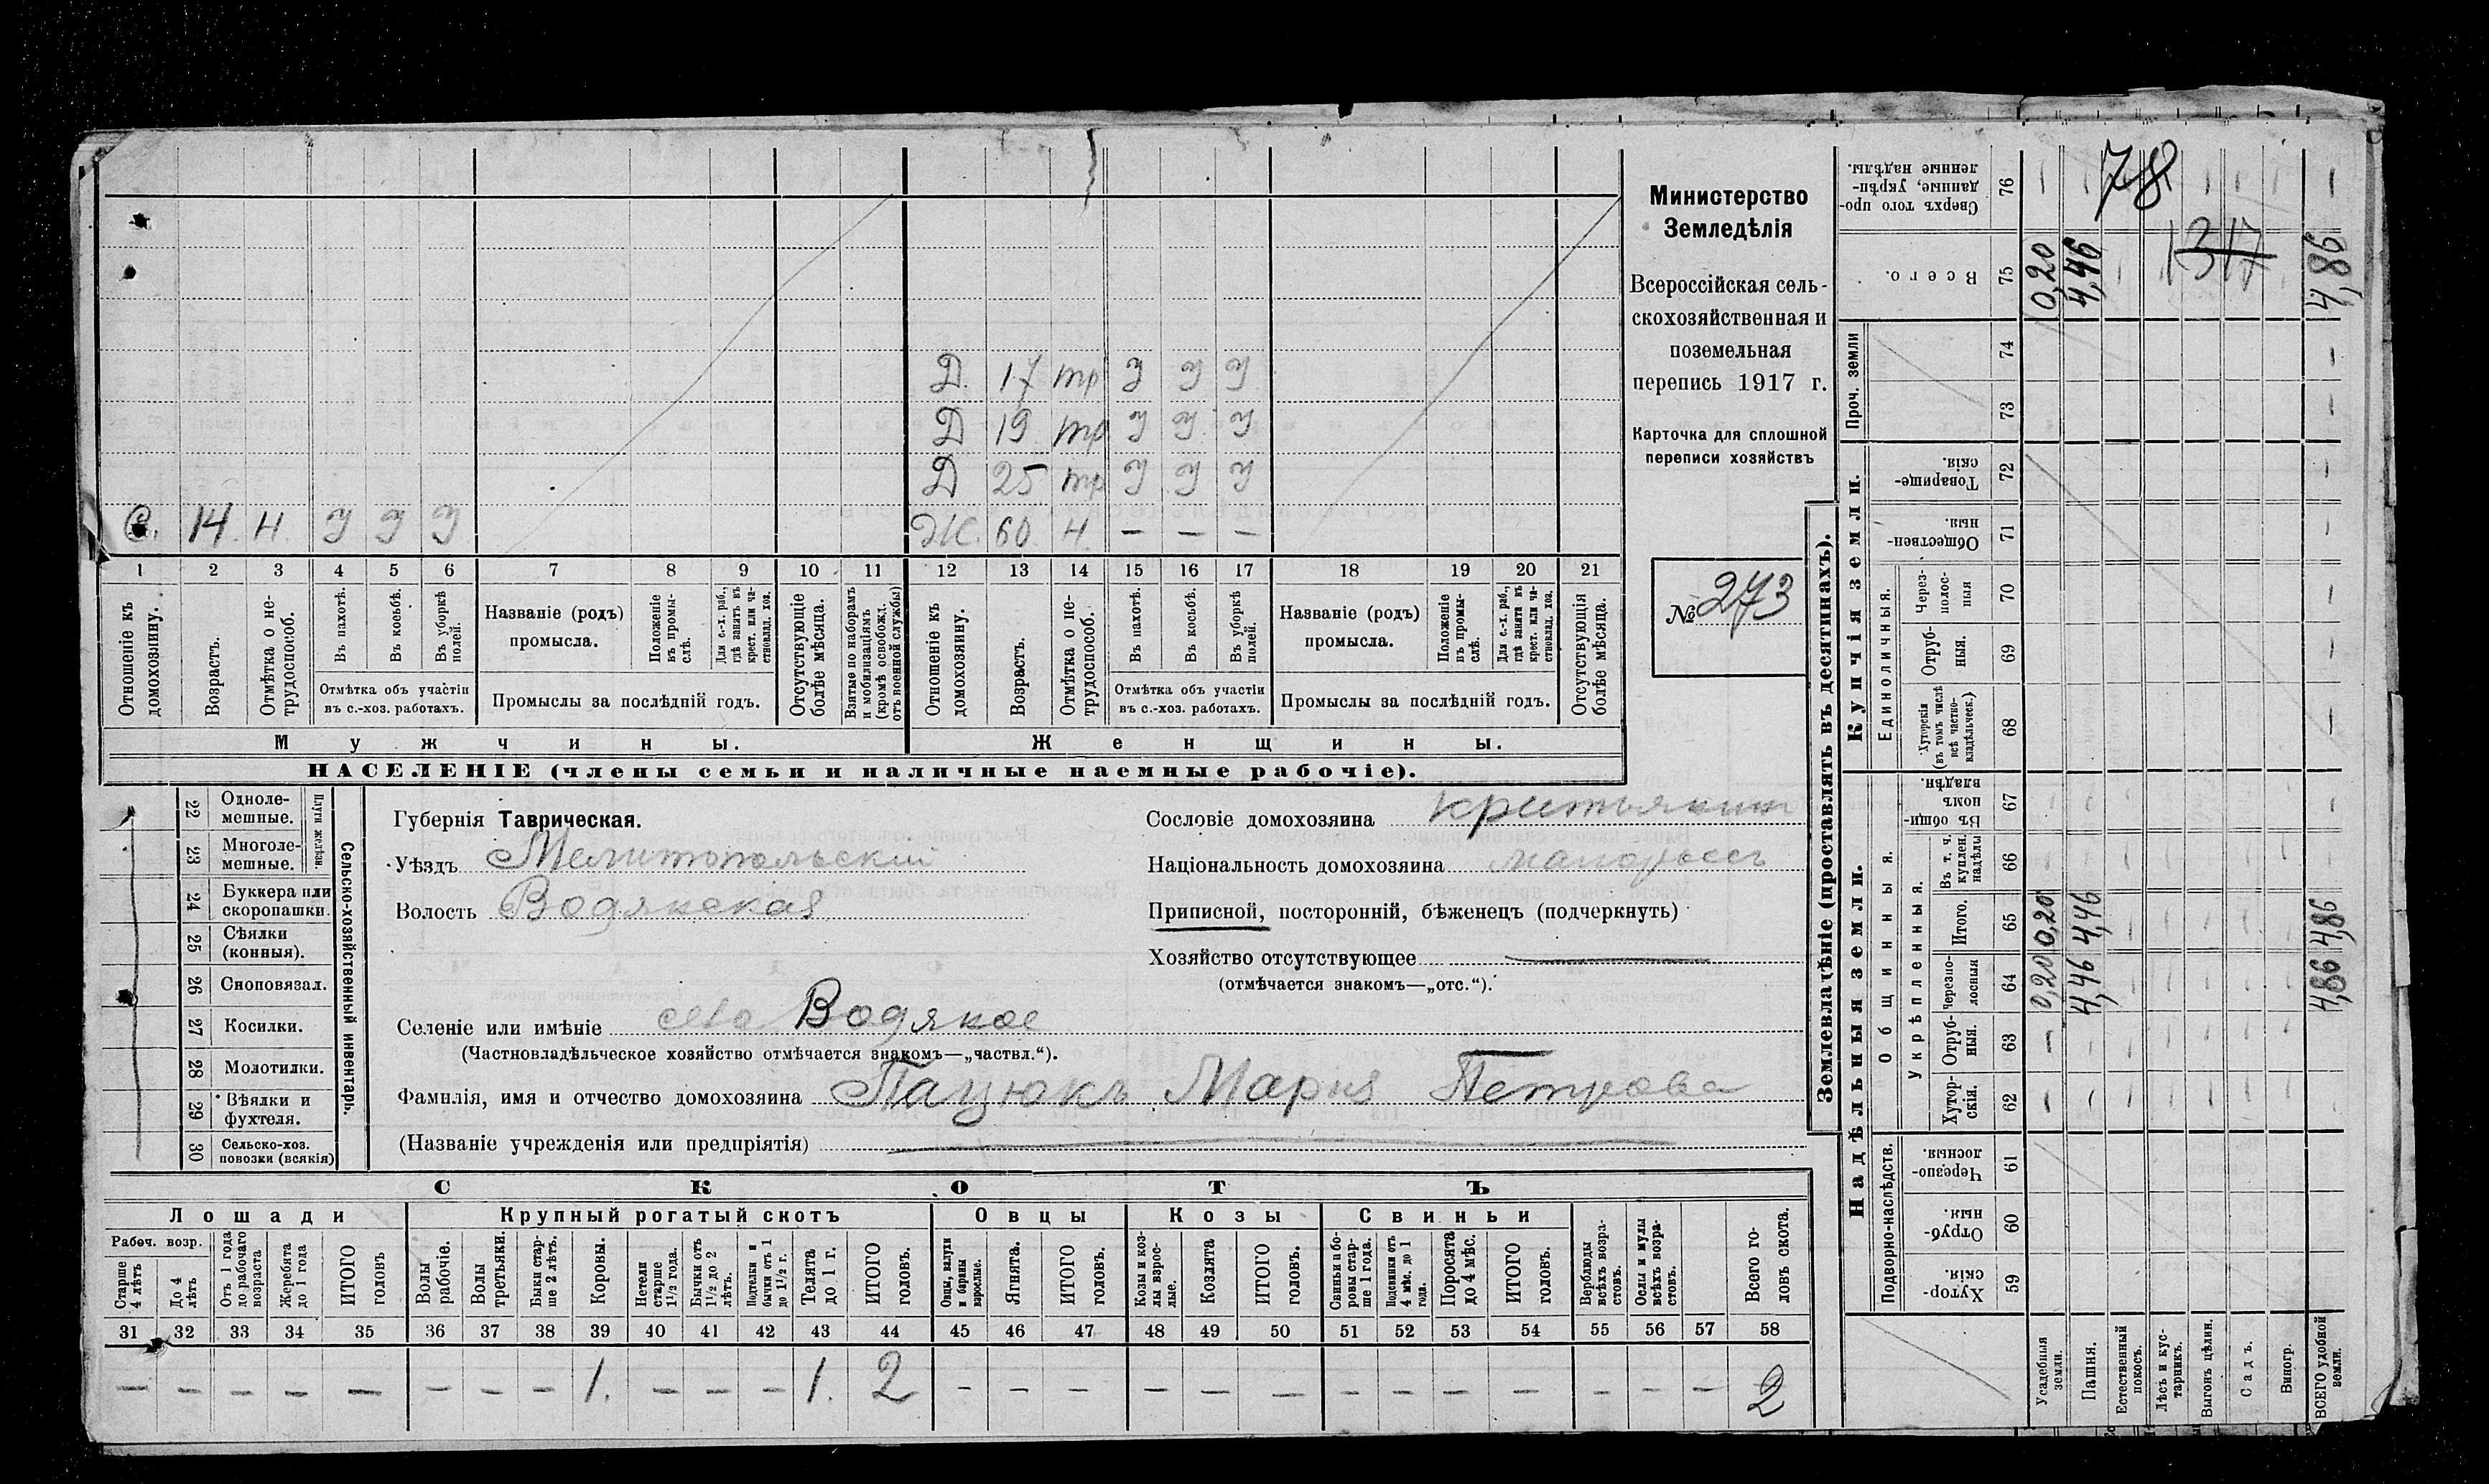 Д. 17 тр У У У
Д 19 тр У У У
Д 25 тр У У У
С. 14. Н. У У У Ж. 60 Н. — — —
1 2 3 4 5 6 7 8 9 10 11 12 13 14 15 16 17 18 19 20 21
Отношеніе къ домохозяину.
Возрастъ.
Отмѣтка о нетрудоспособ.
Въ пахотѣ.
Въ косьбѣ.
Въ уборкѣ полей.
Отмѣтка объ участіи
въ с.-хоз. работахъ.
Названіе (родъ)
промысла.
Положеніе въ промыслѣ.
Для с.-х. раб., гдѣ занятъ въ крест. или частновлад. хоз.
Промыслы за послѣдній годъ.
Отсутствующіе болѣе мѣсяца.
Взятые по наборамъ и мобилизаціямъ (кромѣ освобожд. отъ военной службы)
Отношеніе къ домохозяину.
Возрастъ.
Отмѣтка о нетрудоспособ.
Въ пахотѣ.
Въ косьбѣ.
Въ уборкѣ полей.
Отмѣтка объ участіи
въ с.-хоз. работахъ.
Названіе (родъ)
промысла.
Положеніе въ промыслѣ.
Для с.-х. раб., гдѣ занята въ крест. или частновлад. хоз.
Промыслы за послѣдній годъ.
Отсутствующія болѣе мѣсяца.
Мужчины. Женщины.
НАСЕЛЕНІЕ (члены семьи и наличные наемные рабочіе).
Министерство
Земледѣлія
Всероссійская сель-
скохозяйственная и
поземельная
перепись 1917 г.
Карточка для сплошной
переписи хозяйствъ
№ 273
22 Одноле-
мешные.
23 Многоле-
мешные.
Плуги желѣзн.
24 Буккера или
скоропашки.
25 Сѣялки
(конныя).
26 Сноповязал.
27 Косилки.
28 Молотилки.
29 Вѣялки и
фухтеля.
30 Сельско-хоз.
повозки (всякія)
Сельско-хозяйственный инвентарь.
Губернія Таврическая.
Уѣздъ Мелитопольскій
Волость Водянская
Сословіе домохозяина крестьянин
Національность домохозяина малороссъ
Приписной, посторонній, бѣженецъ (подчеркнуть)
Хозяйство отсутствующее —
(отмѣчается знакомъ—„отс.“).
Селеніе или имѣніе село Водяное
(Частновладѣльческое хозяйство отмѣчается знакомъ—„частвл.“).
Фамилія, имя и отчество домохозяина Пацюкъ Мария Петрова
(Названіе учрежденія или предпріятія)
СКОТЪ
Лошади Крупный рогатый скотъ Овцы Козы Свиньи
Рабоч. возр.
Старше 4 лѣтъ
До 4 лѣтъ
Отъ 1 года до рабочаго возраста
Жеребята до 1 года
ИТОГО головъ
Волы рабочіе.
Волы третьяки.
Быки старше 2 лѣтъ.
Коровы.
Нетели старше 1½ года.
Бычки отъ 1½ до 2 лѣтъ.
Подтелки и бычки отъ 1 до 1½ г.
Телята до 1 г.
ИТОГО головъ.
Овцы, валухи и бараны взрослые.
Ягнята.
ИТОГО головъ.
Козы и козлы взрослые.
Козлята
ИТОГО головъ.
Свиньи и боровы старше 1 года.
Подсвинки отъ 4 мѣс. до 1 года.
Поросята до 4 мѣс.
ИТОГО головъ.
Верблюды всѣхъ возрастовъ.
Ослы и мулы всѣхъ возрастовъ.
Всего головъ скота.
31 32 33 34 35 36 37 38 39 40 41 42 43 44 45 46 47 48 49 50 51 52 53 54 55 56 57 58
— — — — — — — — 1. — — — 1. 2 — — — — — — — — — — — — — 2
Землевладѣніе (проставлять въ десятинахъ).
Надѣльныя земли. Купчія земли. Проч. земли
Подворно-наслѣдств. Общинныя. Единоличныя.
Укрѣпленныя.
Хуторскія. 59
Отрубныя. 60
Черезполосныя. 61
Хуторскія. 62
Отрубныя. 63
Черезполосныя 64
Итого. 65
Въ т. ч. куплен. надѣлы 66
Въ общинномъ владѣн. 67
Хуторскія (въ томъ числѣ всѣ частновладѣльческ.) 68
Отрубныя. 69
Черезполосныя 70
Общественныя. 71
Товарищескія. 72
73
74
Всего. 75
Сверхъ того проданные, укрѣпленные надѣлы. 76
Усадебныя земли. 0,20 0,20 0,20
Пашня. 4,46 4,46 4,46
Естественный покосъ.
Лѣсъ и кустарникъ.
Выгонъ цѣлин.
Садъ.
Виногр.
ВСЕГО удобной земли. 4,86 4,86 4,86
78
1317